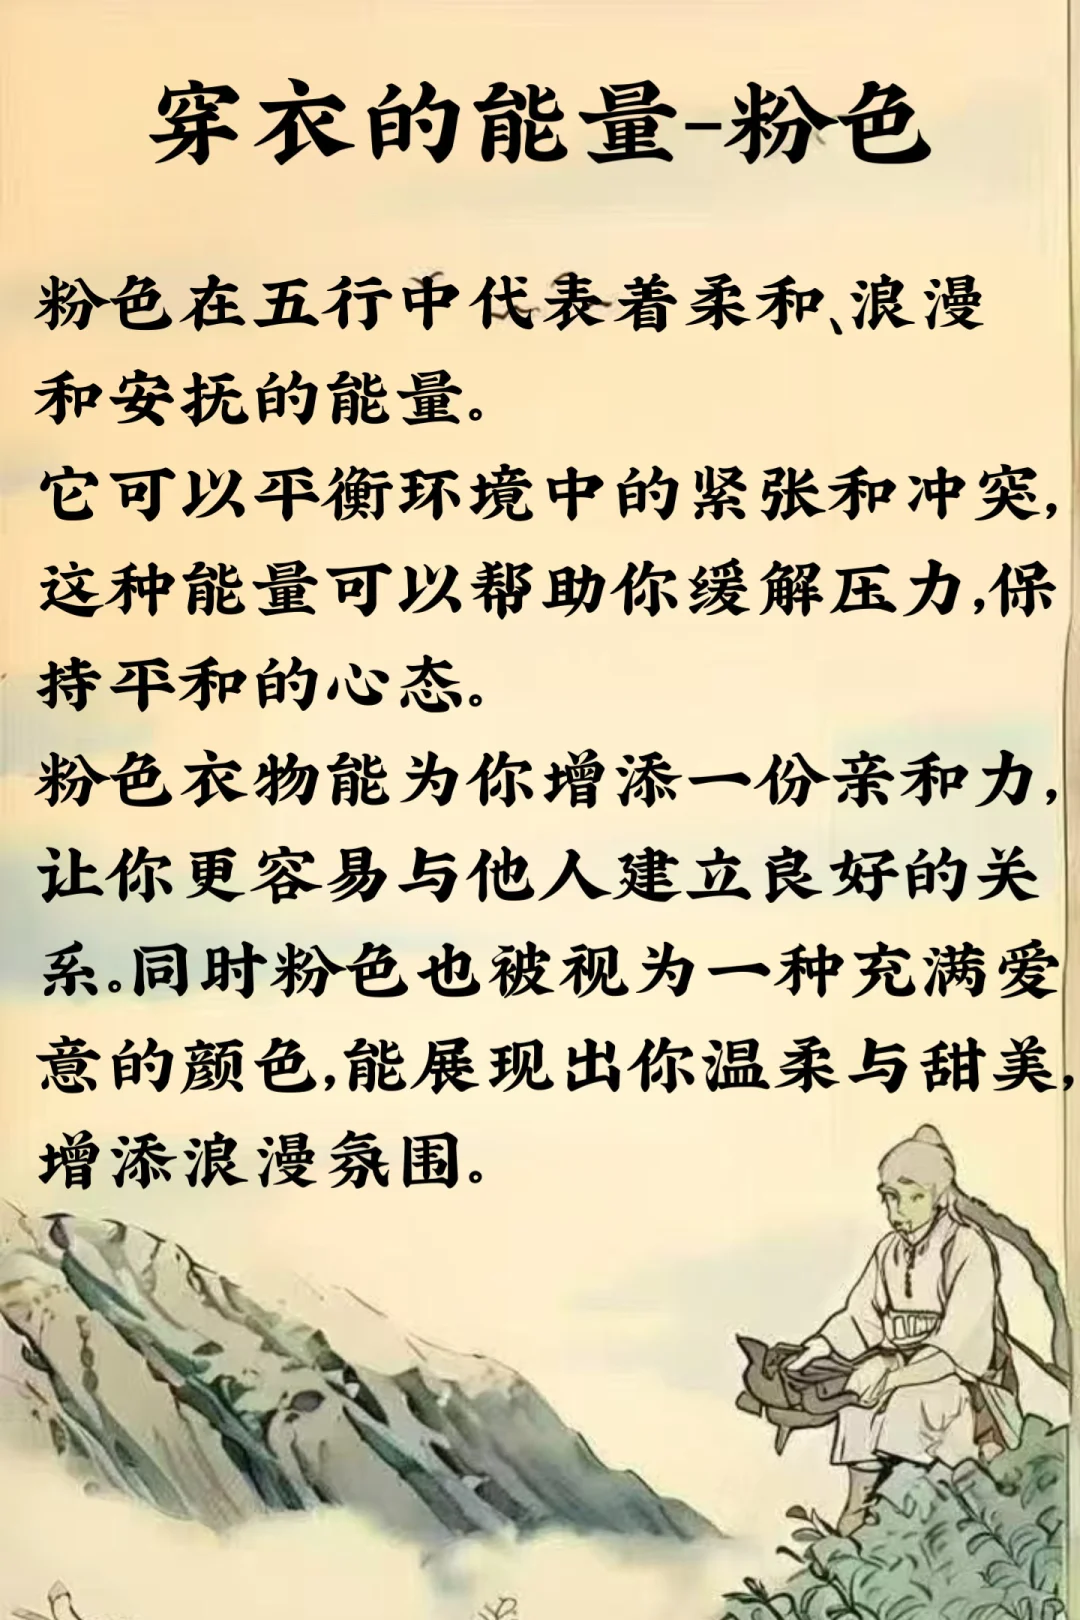 穿衣的能量-粉色
粉色在五行中代表着柔和、浪漫
和安抚的能量。
它可以平衡环境中的紧张和冲突,
这种能量可以帮助你缓解压力,保
持平和的心态。
粉色衣物能为你增添一份亲和力,
让你更容易与他人建立良好的关
系。同时粉色也被视为一种充满爱
意的颜色,能展现出你温柔与甜美,
增添浪漫氛围。